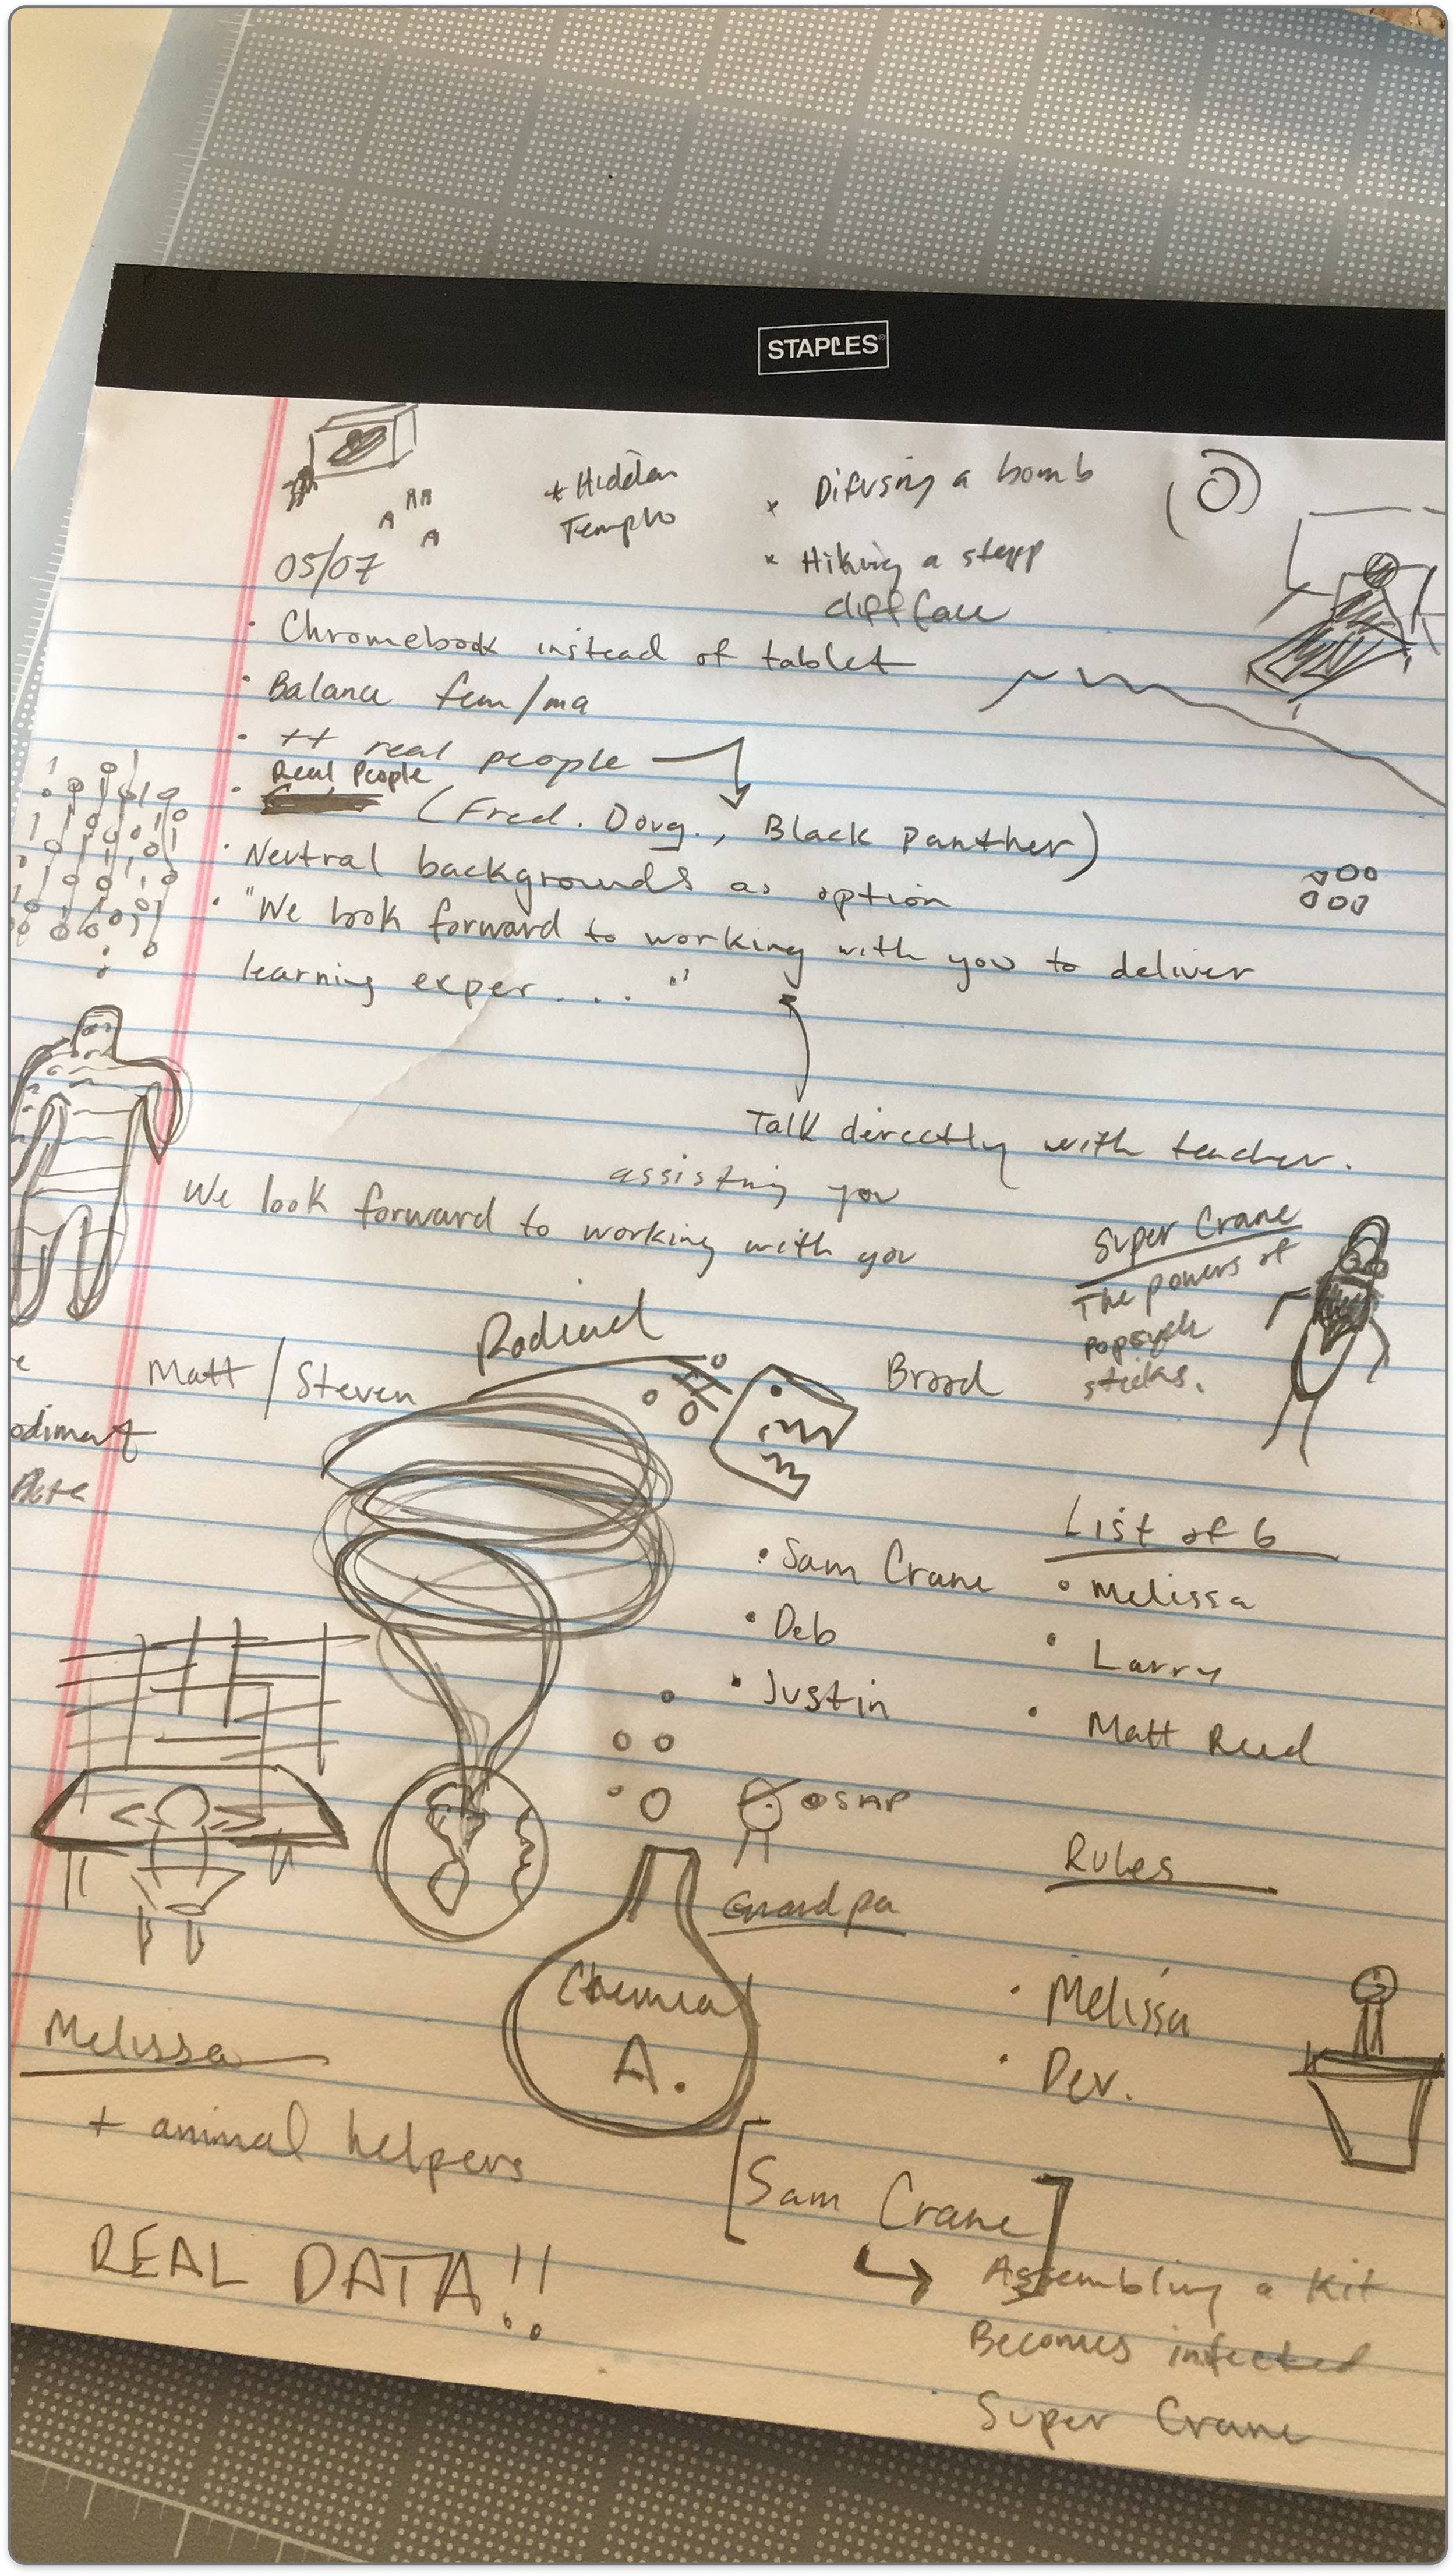 STAPLES
+ Hidden
Temple
x Difusing a bomb
x Hiking a stepp
cliff face
05/07
• Chromebook instead of tablet
• Balance fem/ma
• ++ real people
Real People
• (Fred. Doug., Black Panther)
• Neutral backgrounds as option
• "We look forward to working with you to deliver
learning exper...."
Talk directly with teacher.
assisting you
We look forward to working with you
Super Crane
The powers of
popsycle
sticks.
Matt / Steven
Brood
• Sam Crane
• Deb
• Justin
List of 6
• Melissa
• Larry
• Matt Reed
Grandpa
Chemical
A.
Rules
• Melissa
• Dev.
Melissa
+ animal helpers
REAL DATA!!
[Sam Crane]
Assembling a Kit
Becomes infected
Super Crane